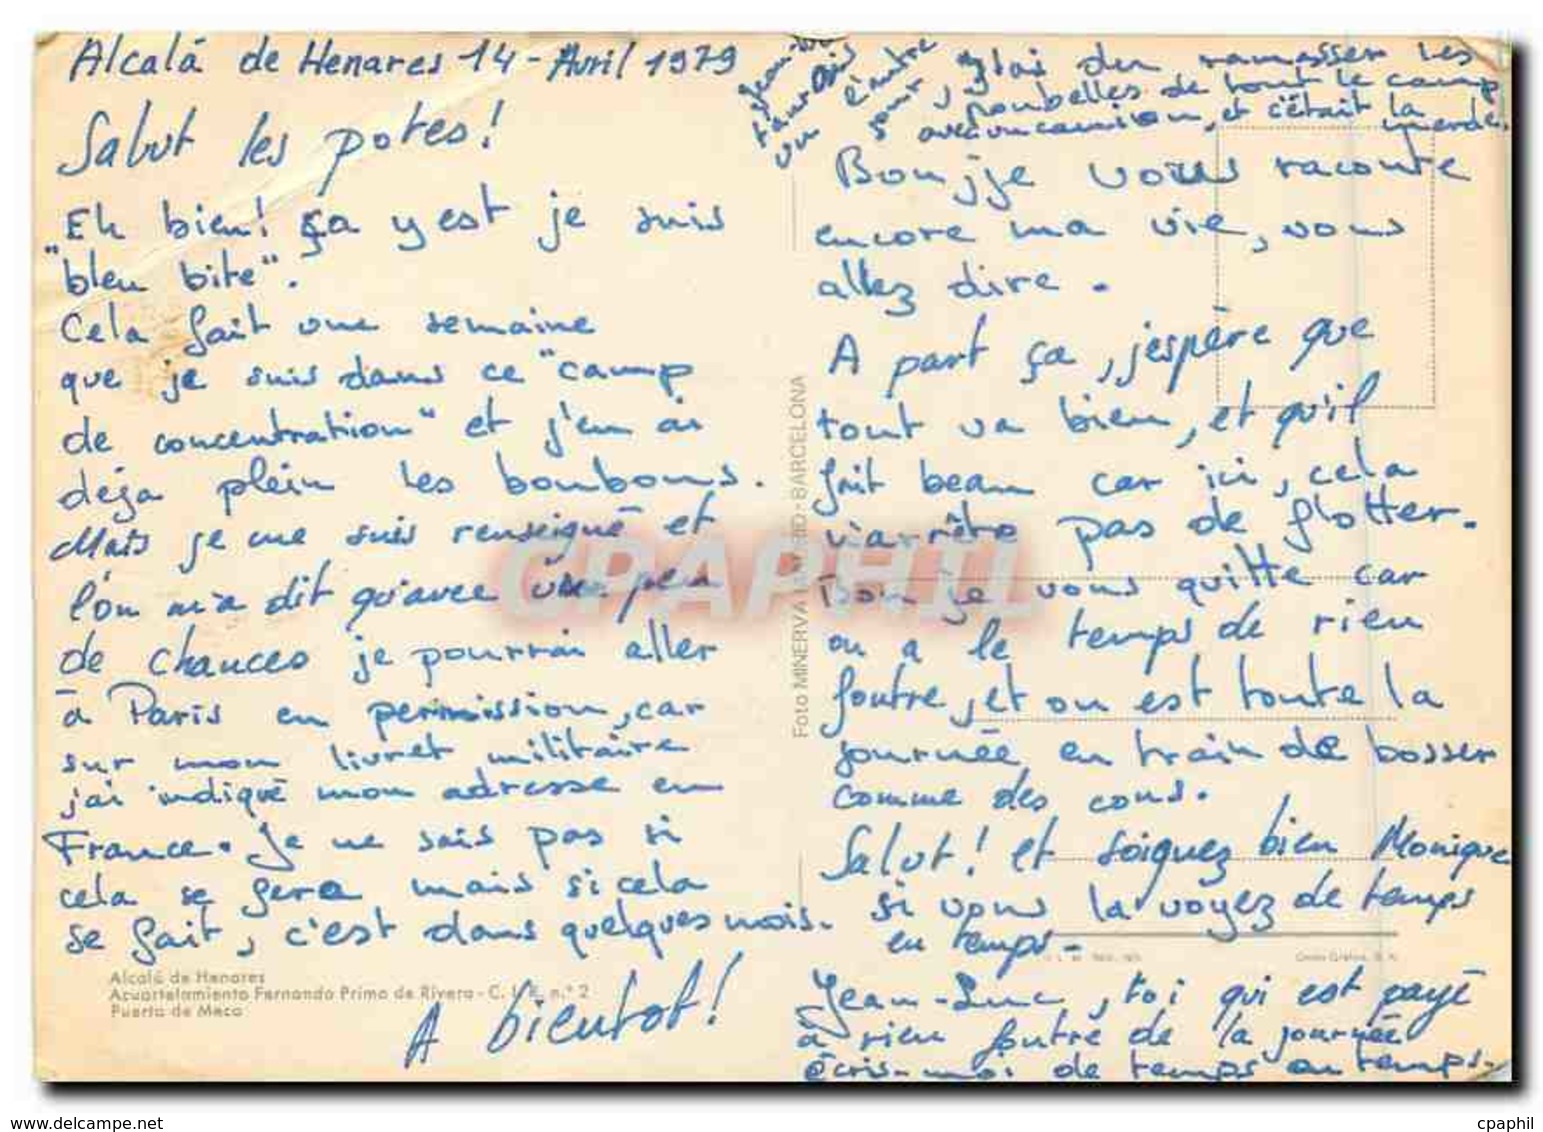 Alcalá de Henares 14 - Avril 1979
Salut les potes!
Eh bien! ça y est je suis
"bleu bite".
Cela fait une semaine
que je suis dans ce "camp
de concentration" et j'en ai
déja plein les bonbons.
Mais je me suis renseigné et
l'on m'a dit qu'avec un peu
de chances je pourrai aller
à Paris en permission, car
sur mon livret militaire
j'ai indiqué mon adresse en
France. Je ne sais pas si
cela se fera mais si cela
se fait, c'est dans quelques mois.
A bientot!
Alcalá de Henares
Acuartelamiento Fernando Primo de Rivera - C. I. R. n.° 2
Puerta de Meco
Foto MINERVA (MADRID - BARCELONA
l'autre
jour, j'ai du ramasser les
poubelles de tout le camp
avec un camion, et c'était la
merde.
Bon, je vous raconte
encore ma vie, vous
allez dire.
A part ça, j'espère que
tout va bien, et qu'il
fait beau car ici, cela
n'arrête pas de flotter.
Bon je vous quitte car
on a le temps de rien
foutre, et on est toute la
journée en train de bosser
comme des cons.
Salut! et soignez bien Monique
si vous la voyez de temps
en temps.
Jean-Luc, toi qui est payé
à rien foutre de la journée
écris-moi de temps en temps.
CPAPHIL
www.delcampe.net
cpaphil